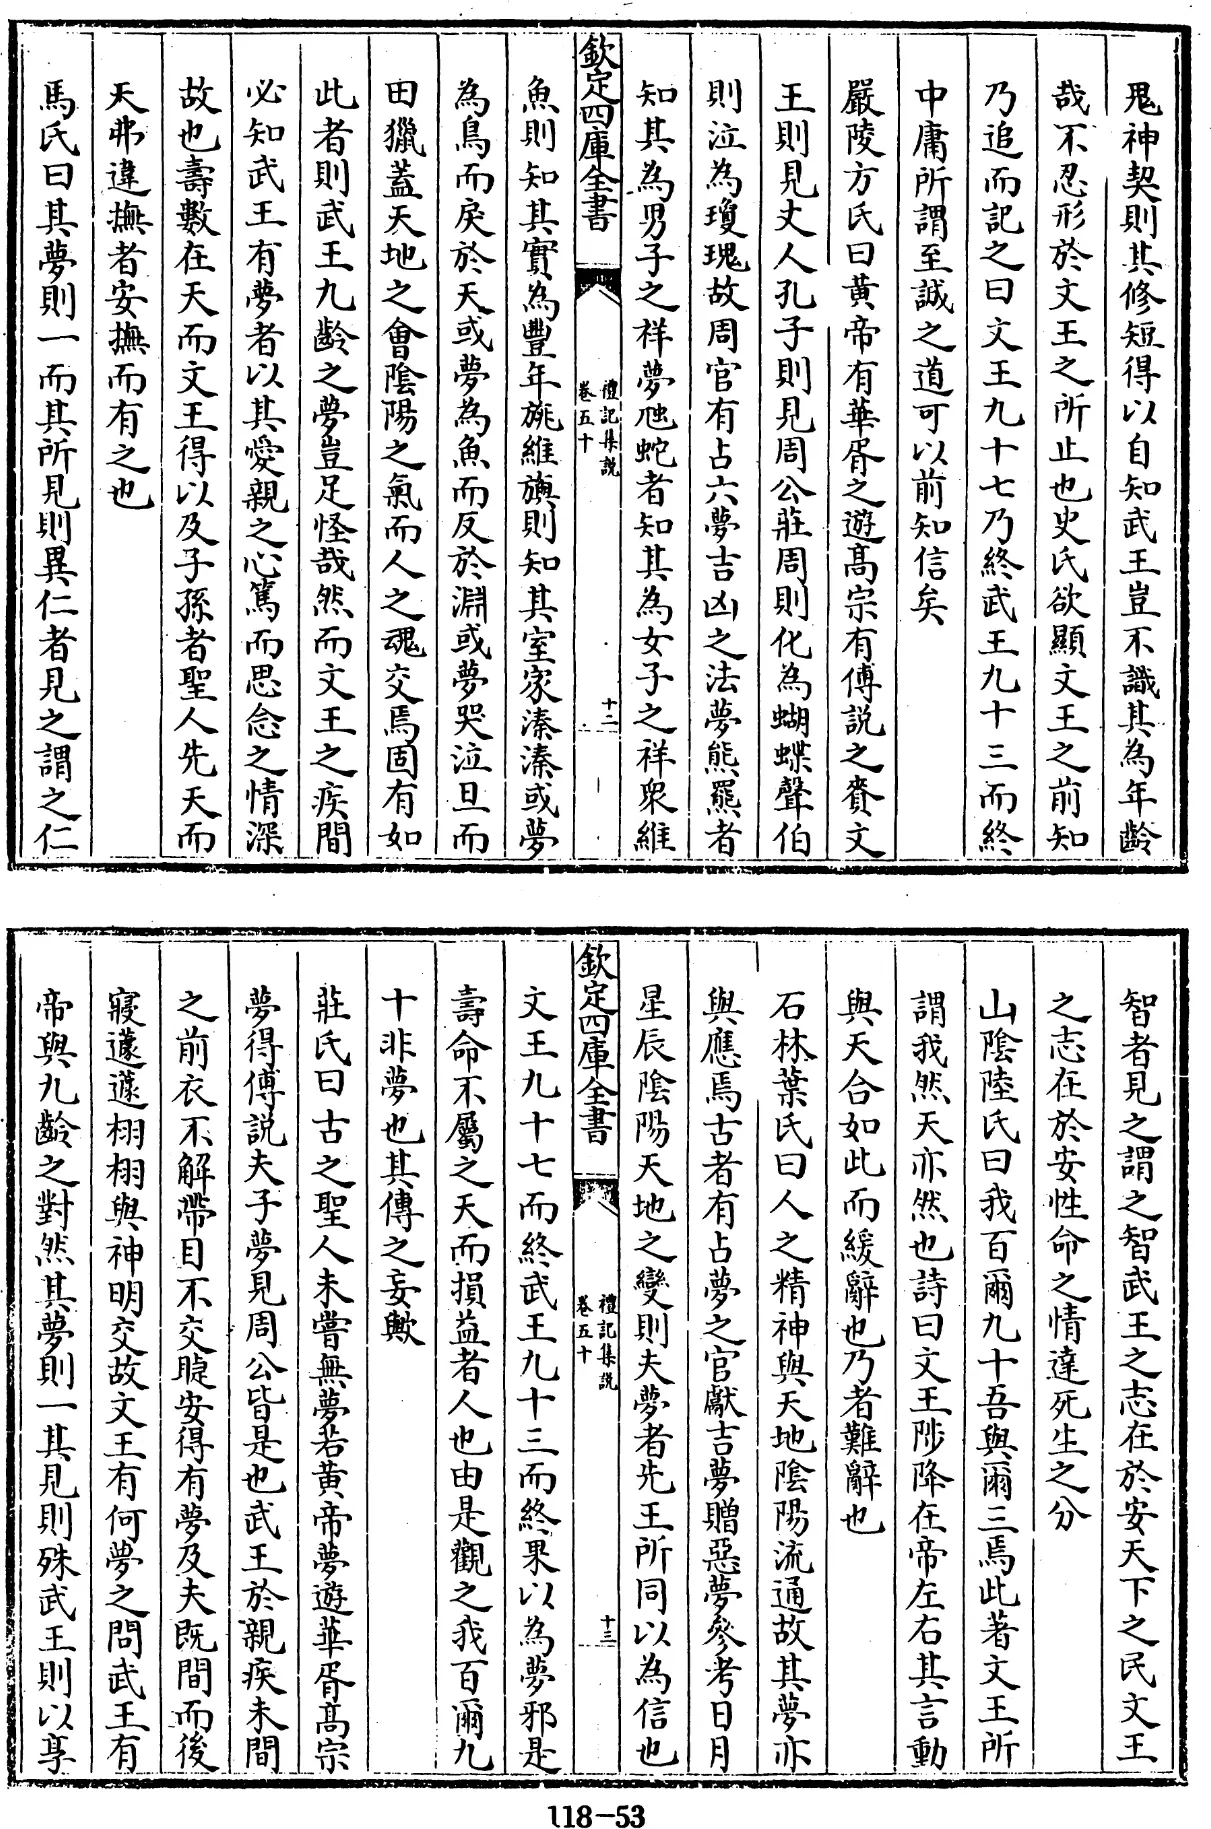 鬼神契則其修短得以自知武王豈不識其為年齡
哉不忍形於文王之所止也史氏欲顯文王之前知
乃追而記之曰文王九十七乃終武王九十三而終
中庸所謂至誠之道可以前知信矣
嚴陵方氏曰黃帝有華胥之遊髙宗有傅説之賚文
王則見丈人孔子則見周公莊周則化為蝴蝶聲伯
則泣為瓊瑰故周官有占六夢吉凶之法夢熊羆者
知其為男子之祥夢虺蛇者知其為女子之祥衆維
欽定四庫全書
禮記集説
卷五十
十二
魚則知其實為豐年旐維旟則知其室家溱溱或夢
為鳥而戾於天或夢為魚而反於淵或夢哭泣旦而
田獵蓋天地之會陰陽之氣而人之魂交焉固有如
此者則武王九齡之夢豈足怪哉然而文王之疾間
必知武王有夢者以其愛親之心篤而思念之情深
故也壽數在天而文王得以及子孫者聖人先天而
天弗違撫者安撫而有之也
馬氏曰其夢則一而其所見則異仁者見之謂之仁
智者見之謂之智武王之志在於安天下之民文王
之志在於安性命之情達死生之分
山陰陸氏曰我百爾九十吾與爾三焉此著文王所
謂我然天亦然也詩曰文王陟降在帝左右其言動
與天合如此而緩辭也乃者難辭也
石林葉氏曰人之精神與天地陰陽流通故其夢亦
與應焉古者有占夢之官獻吉夢贈惡夢參考日月
星辰陰陽天地之變則夫夢者先王所同以為信也
欽定四庫全書
禮記集説
卷五十
十三
文王九十七而終武王九十三而終果以為夢邪是
壽命不屬之天而損益者人也由是觀之我百爾九
十非夢也其傳之妄歟
莊氏曰古之聖人未嘗無夢若黃帝夢遊華胥髙宗
夢得傅説夫子夢見周公皆是也武王於親疾未間
之前衣不解帶目不交睫安得有夢及夫既間而後
寢蘧蘧栩栩與神明交故文王有何夢之問武王有
帝與九齡之對然其夢則一其見則殊武王則以享
118-53